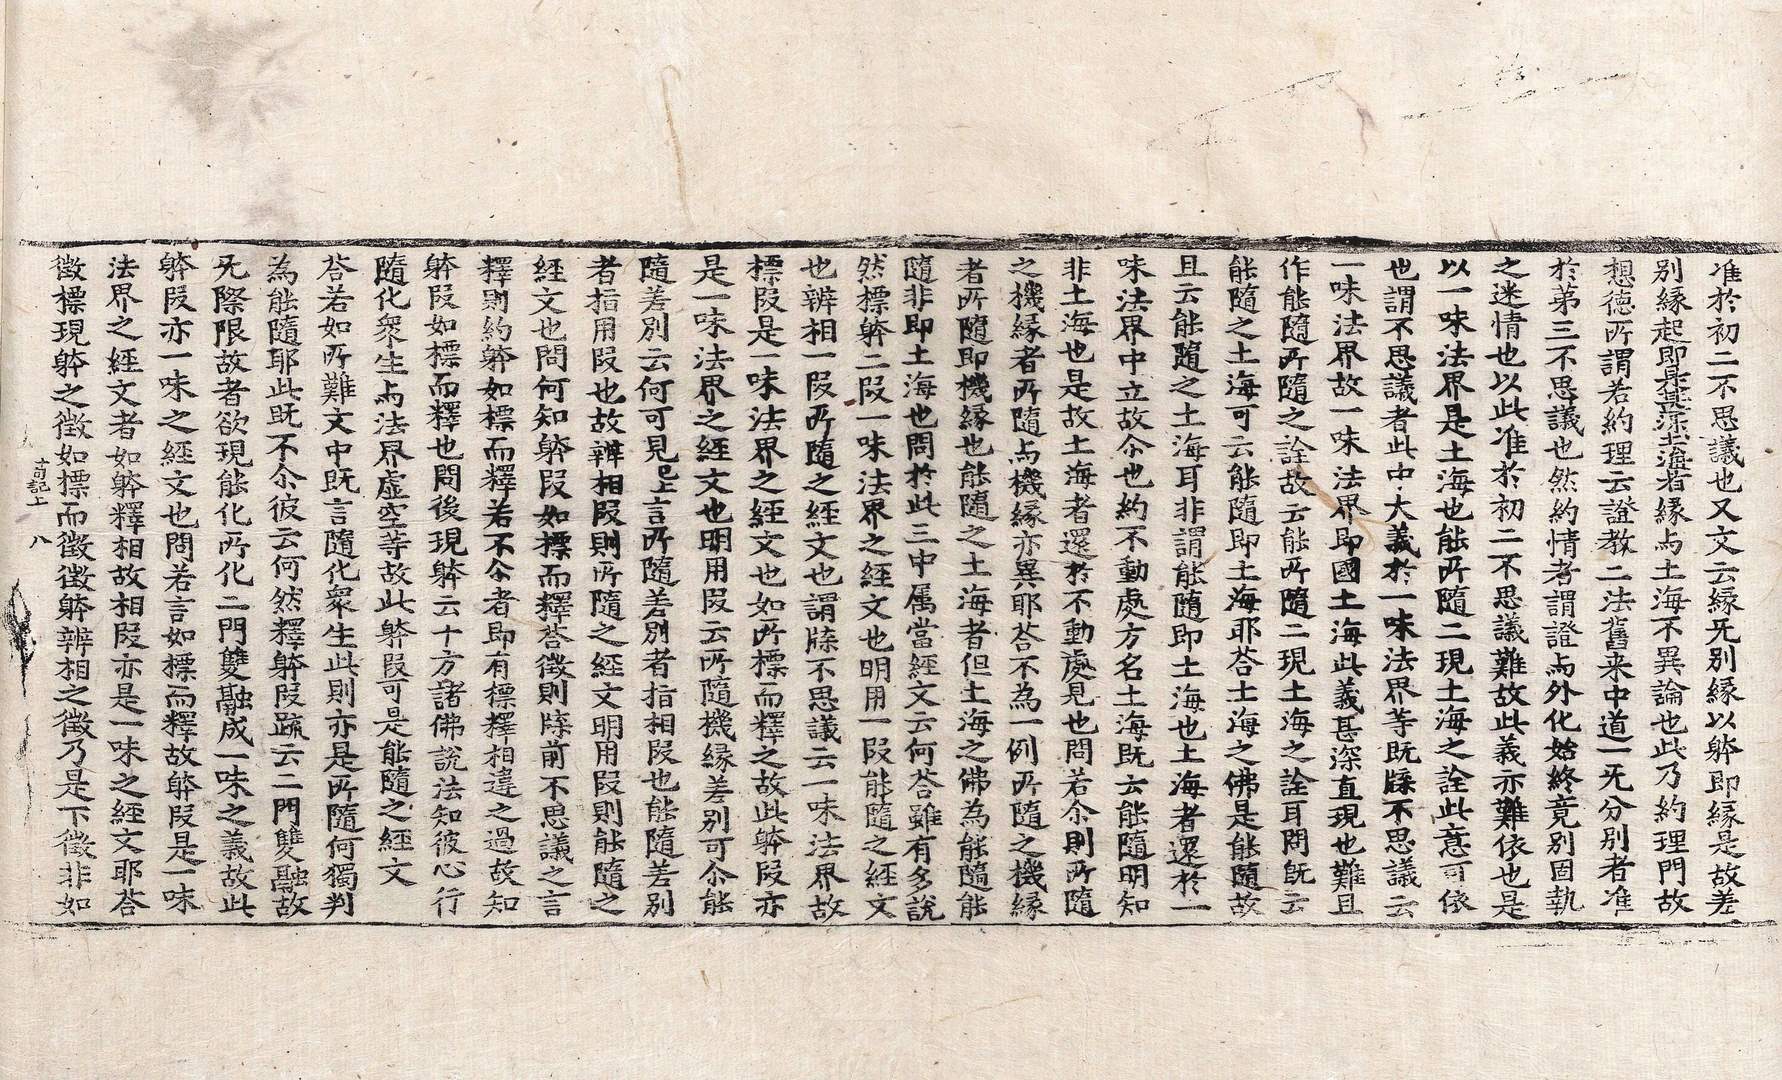 准於初二不思議也又文云緣无別緣以躰即緣是故差
別緣起即是甚深土海者緣与土海不異論也此乃約理門故
想德所謂若約理云證教二法舊来中道一无分別者准
於第三不思議也然約情者謂證与外化始終竟別固執
之迷情也以此准於初二不思議難故此義亦難依也是
以一味法界是土海也能所隨二現土海之詮此意可依
也謂不思議者此中大義於一味法界等既牒不思議云
一味法界故一味法界即國土海此義甚深直現也難且
作能隨所隨之詮故云能所隨二現土海之詮耳問既云
能隨之土海可云能隨即土海耶荅土海之佛是能隨故
且云能隨之土海耳非謂能隨即土海也土海者還於一
味法界中立故尒也約不動處方名土海既云能隨明知
非土海也是故土海者還於不動處見也問若尒則所隨
之機緣者所隨与機緣亦異耶荅不為一例所隨之機緣
者所隨即機緣也能隨之土海者但土海之佛為能隨能
隨非即土海也問於此三中属當經文云何荅雖有多說
然標躰二叚一味法界之經文也明用一叚能隨之經文
也辨相一叚所隨之經文也謂牒不思議云一味法界故
標叚是一味法界之經文也如所標而釋之故此躰叚亦
是一味法界之經文也明用叚云所隨機緣差別可尒能
隨差別云何可見已上言所隨差別者指相叚也能隨差別
者指用叚也故辨相叚則所隨之經文明用叚則能隨之
經文也問何知躰叚如標而釋荅徵則牒前不思議之言
釋則約躰如標而釋若不尒者即有標釋相違之過故知
躰叚如標而釋也問後現躰云十方諸佛說法知彼心行
隨化衆生与法界虛空等故此躰叚可是能隨之經文
荅若如所難文中既言隨化衆生此則亦是所隨何獨判
為能隨耶此既不尒彼云何然釋躰叚䟽云二門雙融故
无際限故者欲現能化所化二門雙融成一味之義故此
躰叚亦一味之經文也問若言如標而釋故躰叚是一味
法界之經文者如躰釋相故相叚亦是一味之經文耶荅
徵標現躰之徵如標而徵徵躰辨相之徵乃是下徵非如
記上 八